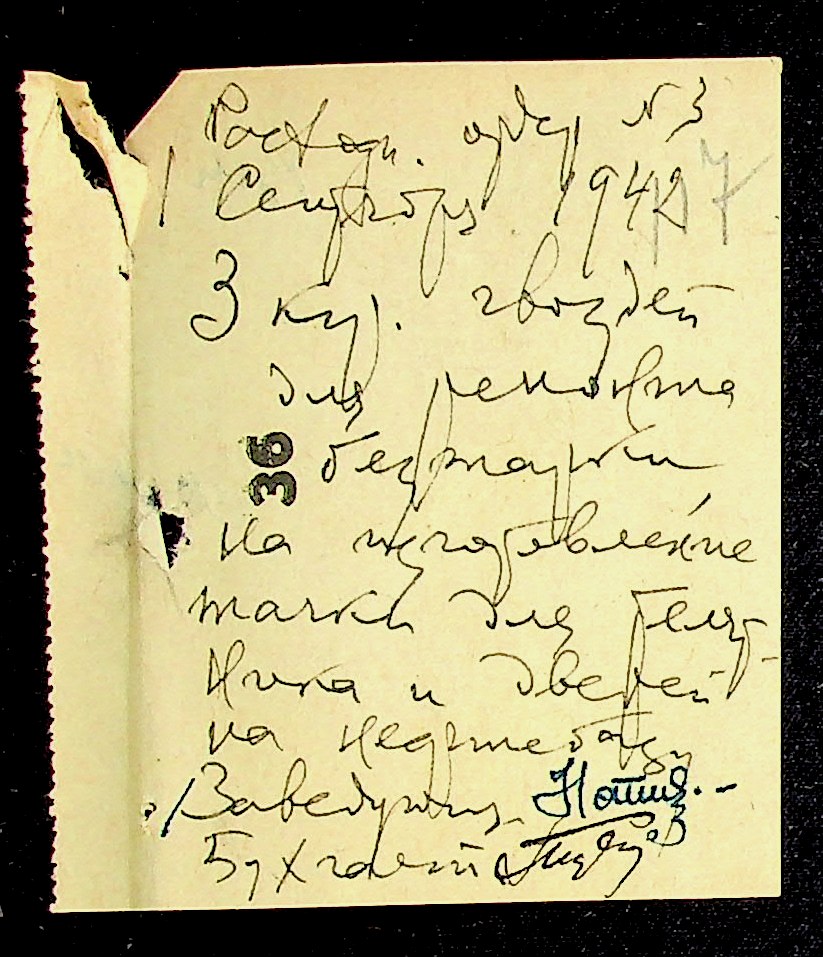 Расходн. ордер N 3
1 Сентября 1942
3 кгр. гвоздей
для ремонта
36
на изготовление
тачки для
ника и дверей
на нефтебазу
Заведующ.
Бухгалтер